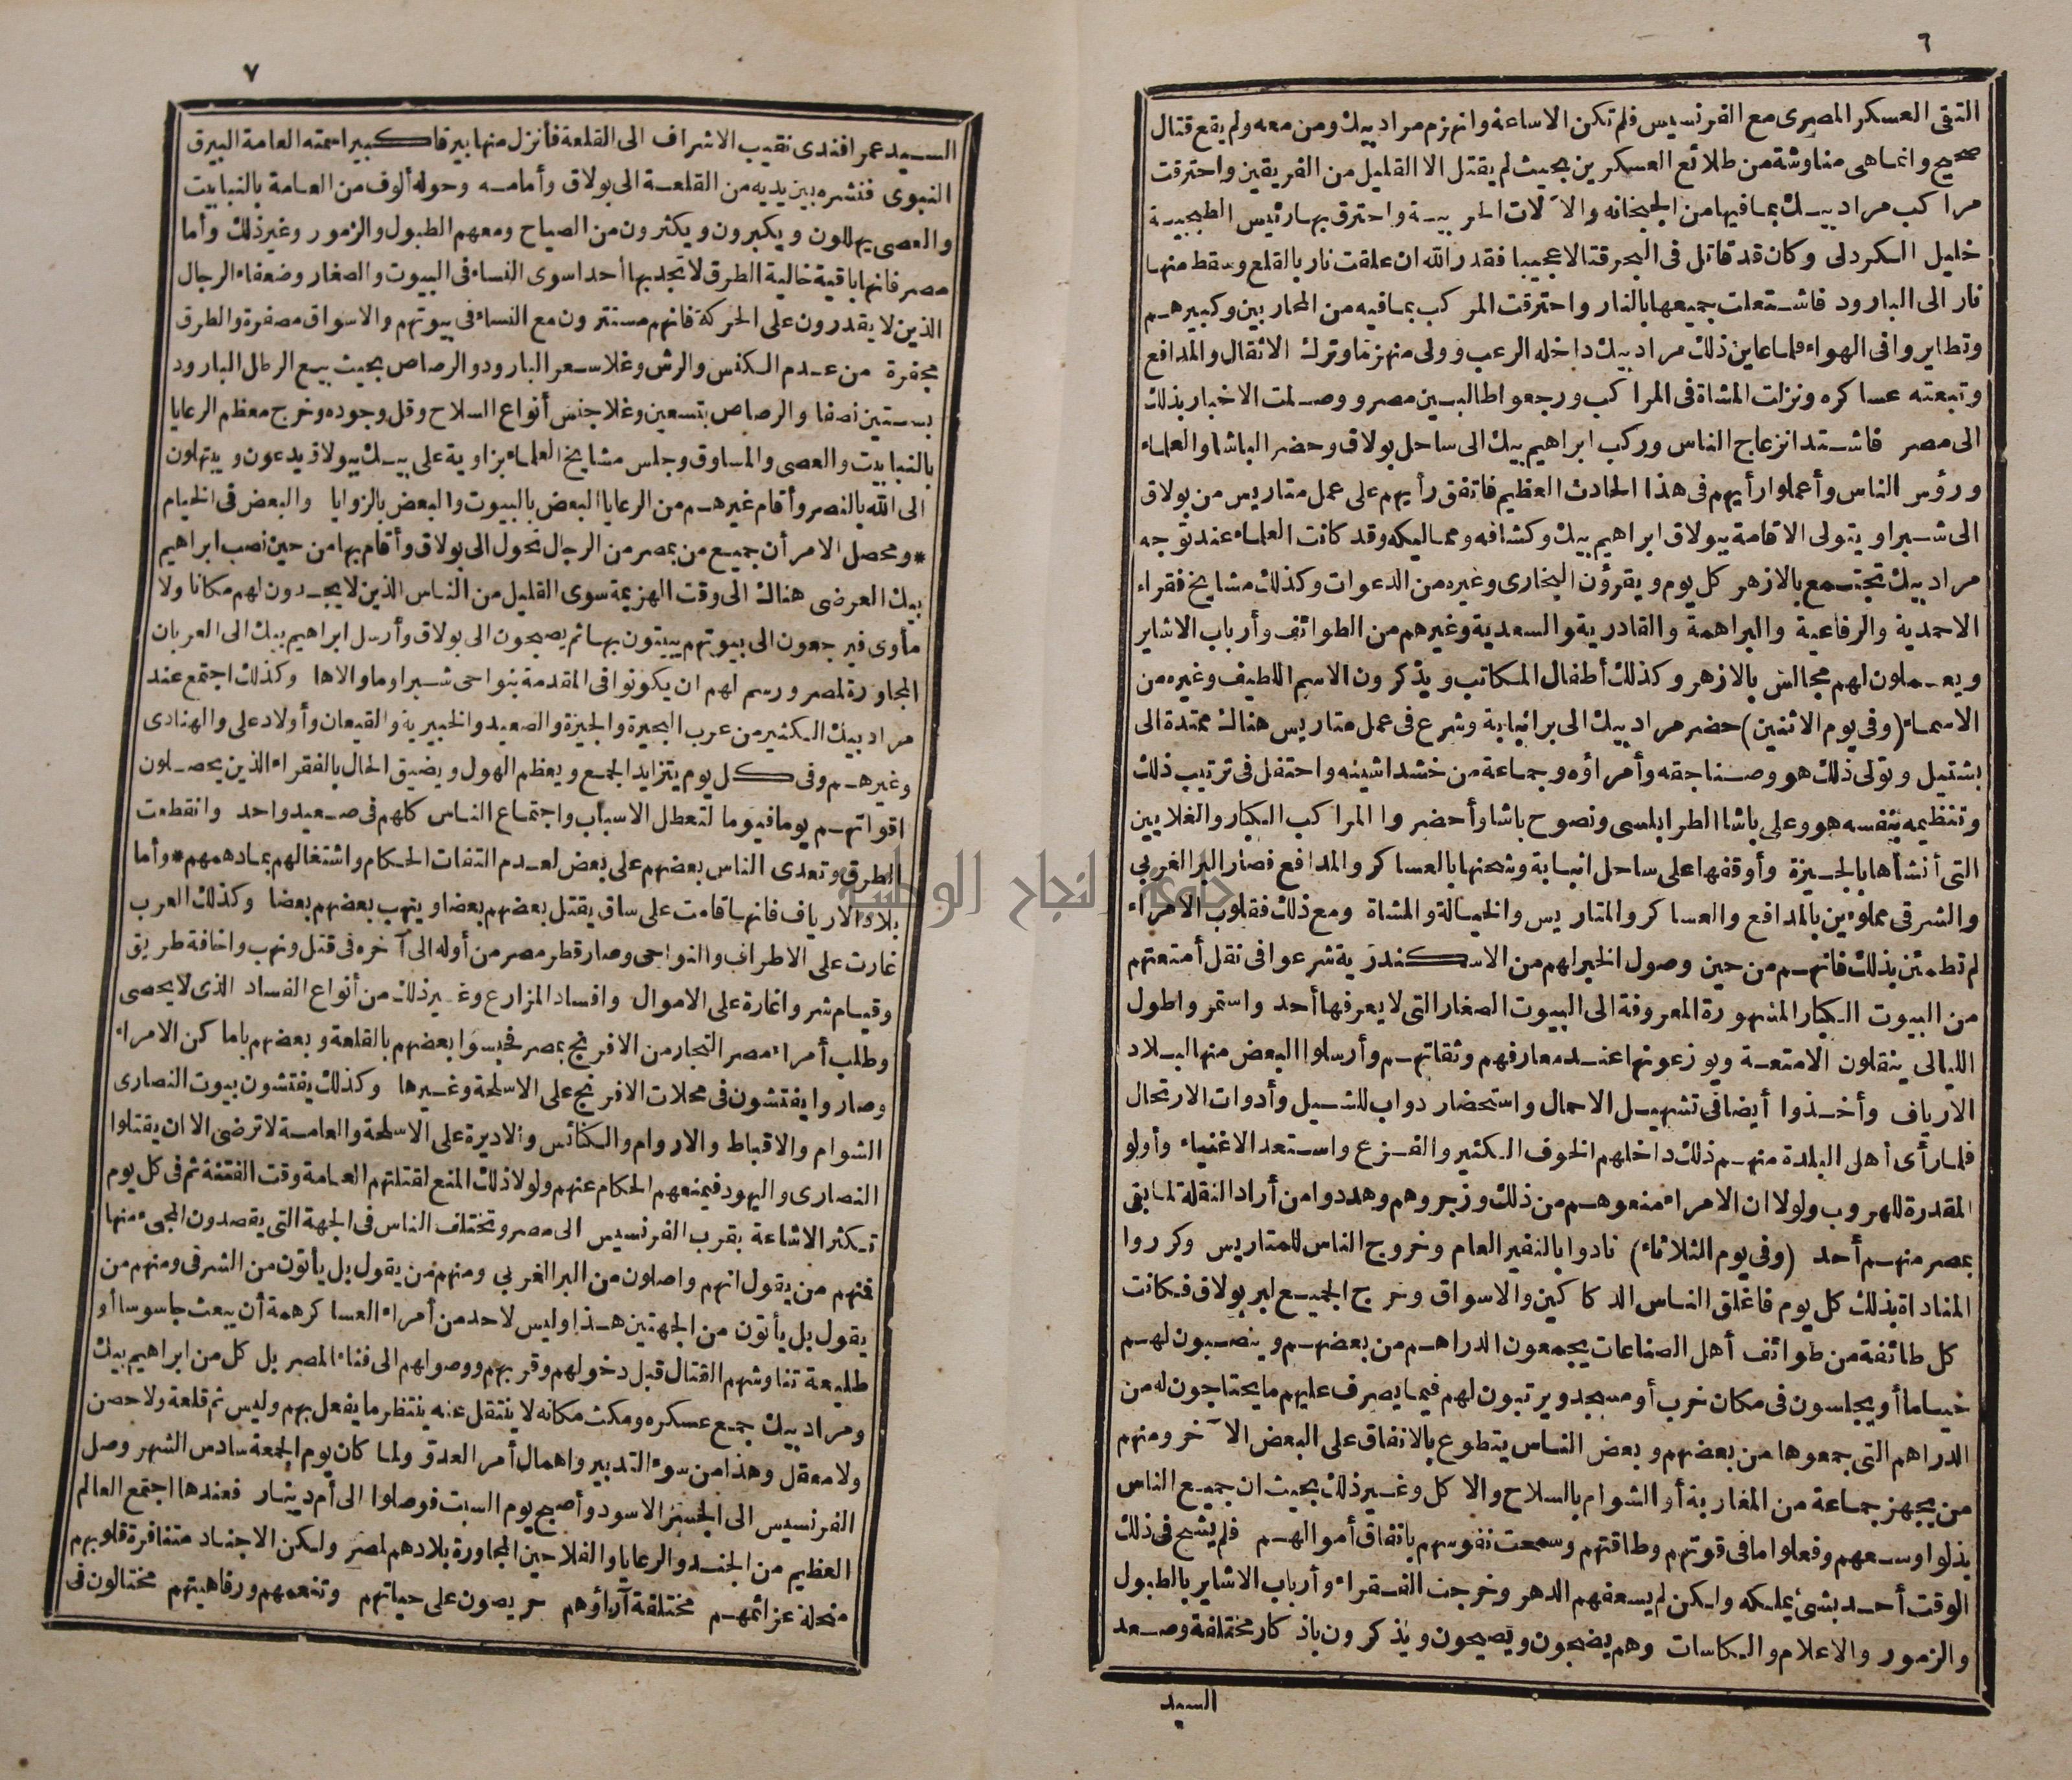 ٦
التقى العسكر المصرى مع الفرنسيس فلم تكن الاساعة وانهزم مراد بيك ومن معه ولم يقع قتال
صحيح وانما هى مناوشة من طلائع العسكرين بحيث لم يقتل الا القليل من الفريقين واحترقت
مراكب مراد بيك بما فيها من الجبخانه والآلات الحربية واحترق بها رئيس الطبجية
خليل الكردلى وكان قد قاتل فى البحر قتالا عجيبا فقدر الله ان علقت نار بالقلع وسقط منها
نار الى البارود فاشتعلت جميعها بالنار واحترقت المركب بما فيه من المحاربين وكبيرهم
وتطايروا فى الهواء فلما عاين ذلك مراد بيك داخله الرعب وولى منهزما وترك الاثقال والمدافع
وتبعته عساكره ونزلت المشاة فى المراكب ورجعوا طالبين مصر ووصلت الاخبار بذلك
الى مصر فاشتد انزعاج الناس وركب ابراهيم بيك الى ساحل بولاق وحضر الباشا والعلماء
ورؤس الناس وأعملوا رأيهم فى هذا الحادث العظيم فاتفق رأيهم على عمل متاريس من بولاق
الى شبرا ويتولى الاقامة ببولاق ابراهيم بيك وكشافه ومماليكه وقد كانت العلماء عند توجه
مراد بيك تجتمع بالازهر كل يوم ويقرؤن البخارى وغيره من الدعوات وكذلك مشايخ فقراء
الاحمدية والرفاعية والبراهمة والقادرية والسعدية وغيرهم من الطوائف وأرباب الاشاير
ويعملون لهم مجالس بالازهر وكذلك أطفال المكاتب ويذكرون الاسم اللطيف وغيره من
الاسماء (وفى يوم الاثنين) حضر مراد بيك الى بر انبابة وشرع فى عمل متاريس هناك ممتدة الى
بشتيل وتولى ذلك هو وصناجقه وأمراؤه وجماعة من خشداشينه واحتفل فى ترتيب ذلك
وتنظيمه بنفسه هو وعلى باشا الطرابلسى ونصوح باشا وأحضروا المراكب الكبار والغلايين
التى أنشأها بالجيزة وأوقفها على ساحل انبابة وشحنها بالعساكر والمدافع فصار البر الغربي
والشرقى مملوءين بالمدافع والعساكر والمتاريس والخيالة والمشاة ومع ذلك فقلوب الامراء
لم تطمئن بذلك فانهم من حين وصول الخبر لهم من الاسكندرية شرعوا فى نقل أمتعتهم
من البيوت الكبار المشهورة المعروفة الى البيوت الصغار التى لا يعرفها أحد واستمروا طول
الليالى ينقلون الامتعة ويوزعونها عند معارفهم وثقاتهم وأرسلوا البعض منها البلاد
الارياف وأخذوا أيضا فى تشهيل الاحمال واستحضار دواب للشيل وأدوات الارتحال
فلما رأى أهل البلدة منهم ذلك داخلهم الخوف الكثير والفزع واستعد الاغنياء وأولو
المقدرة للهروب ولولا ان الامراء منعوهم من ذلك وزجروهم وهددوا من أراد النقلة لما بقى
بمصر منهم أحد (وفى يوم الثلاثاء) نادوا بالنفير العام وخروج الناس للمتاريس وكرروا
المناداة بذلك كل يوم فاغلق الناس الدكاكين والاسواق وخرج الجميع لبر بولاق فكانت
كل طائفة من طوائف أهل الصناعات يجمعون الدراهم من بعضهم وينصبون لهم
خياما أو يجلسون فى مكان خرب أو مسجد ويرتبون لهم فيما يصرف عليهم ما يحتاجون له من
الدراهم التى جمعوها من بعضهم وبعض الناس يتطوع بالانفاق على البعض الآخر ومنهم
من يجهز جماعة من المغاربة أو الشوام بالسلاح والاكل وغير ذلك بحيث ان جميع الناس
بذلوا وسعهم وفعلوا ما فى قوتهم وطاقتهم وسمحت نفوسهم بانفاق أموالهم فلم يشح فى ذلك
الوقت أحد بشئ يملكه ولكن لم يسعفهم الدهر وخرجت الفقراء وأرباب الاشاير بالطبول
والزمور والاعلام والكاسات وهم يضجون ويصيحون ويذكرون باذكار مختلفة وصعد
السيد
٧
السيد عمر افندى نقيب الاشراف الى القلعة فأنزل منها بيرقا كبيرا سمته العامة البيرق
النبوى فنشره بين يديه من القلعة الى بولاق وأمامه وحوله ألوف من العامة بالنبابيت
والعصى يهللون ويكبرون ويكثرون من الصياح ومعهم الطبول والزمور وغير ذلك وأما
مصر فانها باقية خالية الطرق لا تجد بها أحدا سوى النساء فى البيوت والصغار وضعفاء الرجال
الذين لا يقدرون على الحركة فانهم مستترون مع النساء فى بيوتهم والاسواق مصفرة والطرق
مجفرة من عدم الكنس والرش وغلا سعر البارود والرصاص بحيث بيع الرطل البارود
بستين نصفا والرصاص بتسعين وغلا جنس أنواع السلاح وقل وجوده وخرج معظم الرعايا
بالنبابيت والعصى والمساوق وجلس مشايخ العلماء بزاوية على بيك ببولاق يدعون ويبتهلون
الى الله بالنصر وأقام غيرهم من الرعايا البعض بالبيوت والبعض بالزوايا والبعض فى الخيام
* ومحصل الامر أن جميع من بمصر من الرجال تحول الى بولاق وأقام بها من حين نصب ابراهيم
بيك العرضى هناك الى وقت الهزيمة سوى القليل من الناس الذين لا يجدون لهم مكانا ولا
مأوى فيرجعون الى بيوتهم يبيتون بها ثم يصبحون الى بولاق وأرسل ابراهيم بيك الى العربان
المجاورة لمصر ورسم لهم ان يكونوا فى المقدمة بنواحى شبرا وما والاها وكذلك اجتمع عند
مراد بيك الكثير من عرب البحيرة والجيزة والصعيد والخبيرية والقيعان وأولاد على والهنادى
وغيرهم وفى كل يوم يتزايد الجمع ويعظم الهول ويضيق الحال بالفقراء الذين يحصلون
اقواتهم يوما فيوما لتعطل الاسباب واجتماع الناس كلهم فى صعيد واحد وانقطعت
الطرق وتعدى الناس بعضهم على بعض لعدم التفات الحكام واشتغالهم بما دهمهم * وأما
بلاد الارياف فانها قامت على ساق يقتل بعضهم بعضا وينهب بعضهم بعضا وكذلك العرب
غارت على الاطراف والنواحى وصار قطر مصر من أوله الى آخره فى قتل ونهب واخافة طريق
وقيام شر واغارة على الاموال وافساد المزارع وغير ذلك من أنواع الفساد الذى لا يحصى
وطلب أمراء مصر التجار من الافرنج بمصر فحبسوا بعضهم بالقلعة وبعضهم باماكن الامراء
وصاروا يفتشون فى محلات الافرنج على الاسلحة وغيرها وكذلك يفتشون بيوت النصارى
الشوام والاقباط والاروام والكنائس والاديرة على الاسلحة والعامة لا ترضى الا ان يقتلوا
النصارى واليهود فيمنعهم الحكام عنهم ولولا ذلك المنع لقتلتهم العامة وقت الفتنة ثم فى كل يوم
تكثر الاشاعة بقرب الفرنسيس الى مصر وتختلف الناس فى الجهة التى يقصدون المجىء منها
فمنهم من يقول انهم واصلون من البر الغربي ومنهم من يقول بل يأتون من الشرقى ومنهم من
يقول بل يأتون من الجهتين هذا وليس لاحد من أمراء العساكر همة أن يبعث جاسوسا أو
طليعة تناوشهم القتال قبل دخولهم وقربهم ووصولهم الى فناء المصر بل كل من ابراهيم بيك
ومراد بيك جمع عسكره ومكث مكانه لا ينتقل عنه ينتظر ما يفعل بهم وليس ثم قلعة ولا حصن
ولا معقل وهذا من سوء التدبير واهمال أمر العدو ولما كان يوم الجمعة سادس الشهر وصل
الفرنسيس الى الجسر الاسود وأصبح يوم السبت فوصلوا الى أم دينار فعندها اجتمع العالم
العظيم من الجند والرعايا والفلاحين المجاورة بلادهم لمصر ولكن الاجناد متنافرة قلوبهم
منحلة عزائمهم مختلفة آراؤهم حريصون على حياتهم وتنعمهم ورفاهيتهم مختالون فى